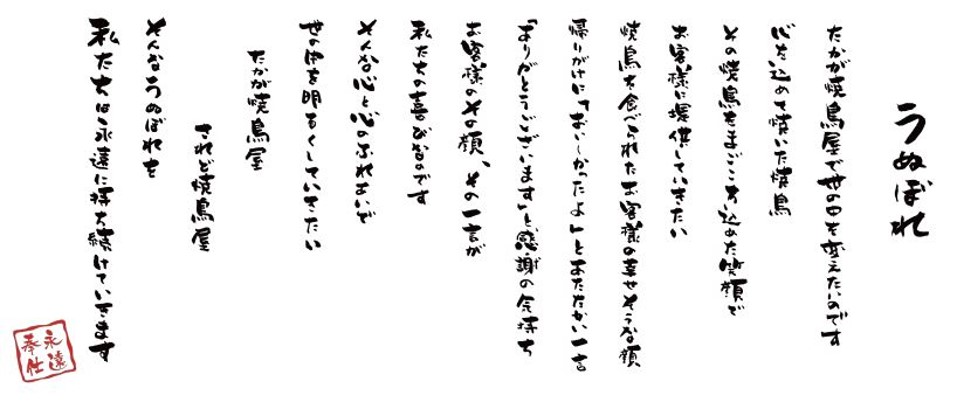 うぬぼれ
たかが焼鳥屋で世の中を変えたいのです
心を込めて焼いた焼鳥
その焼鳥をまごころ込めた笑顔で
お客様に提供していきたい
焼鳥を食べられたお客様の幸せそうな顔
帰りがけに「おい〜かったよ」とあたたかい一言
「ありがとうございます」と感謝の気持ち
お客様のその顔、その一言が
私たちの喜びなのです
そんな心と心のふれあいで
世の中を明るくしていきたい
たかが焼鳥屋
されど焼鳥屋
そんなうぬぼれを
私たちは永遠に持ち続けていきます
永遠
奉仕